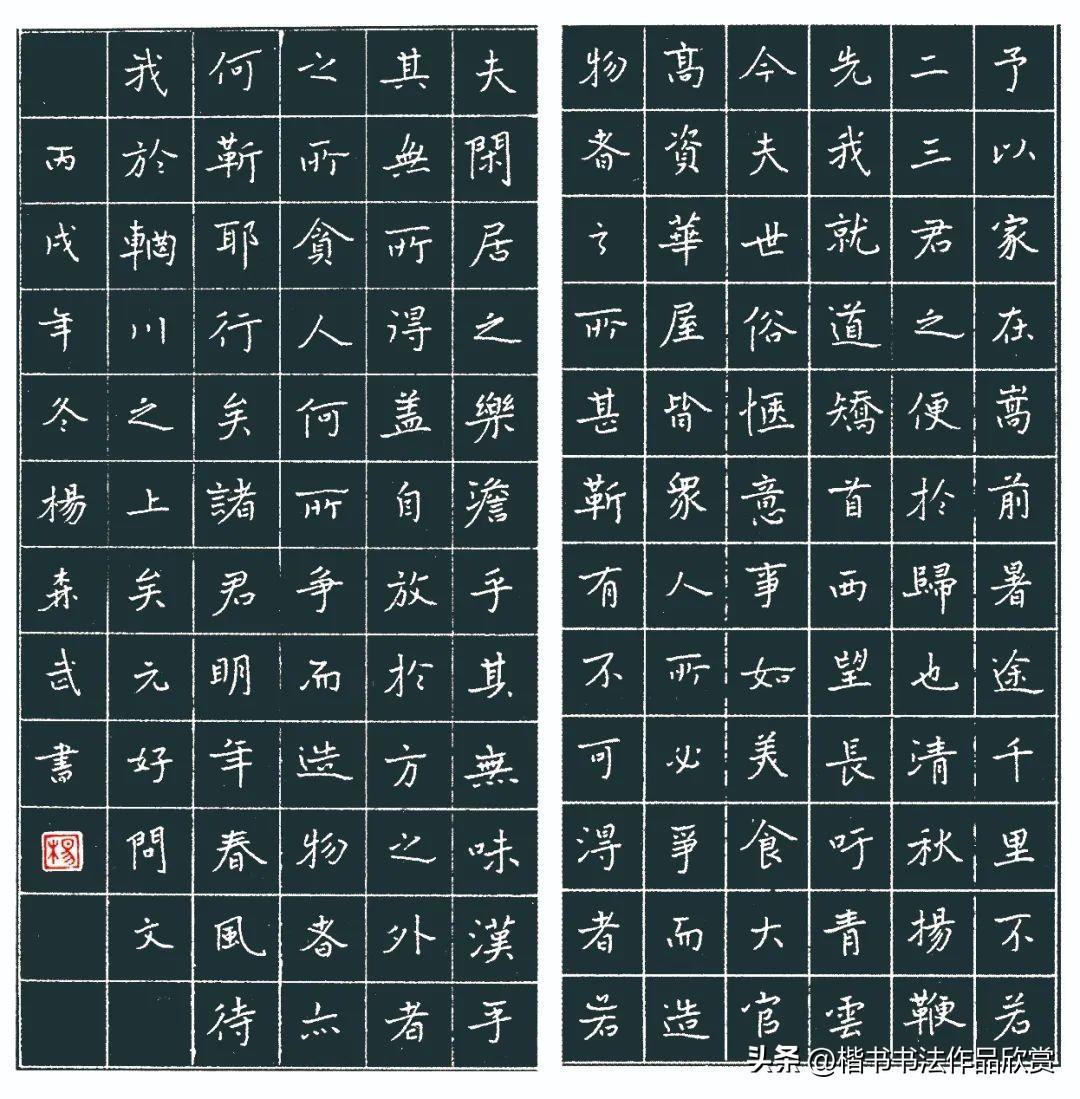 予以家在嵩前暑途千里不若
二三君之便於歸也清秋揚鞭
先我就道矯首西望長吁青雲
今夫世俗愜意事如美食大官
高資華屋皆眾人所必爭而造
物者之所甚靳有不可得者若
夫閑居之樂澹乎其無味漠乎
其無所得盖自放於方之外者
之所貪人何所争而造物者亦
何靳耶行矣諸君明年春風待
我於輞川之上矣元好問文
丙戌年冬楊森武書
楊
头条 @楷书书法作品欣赏